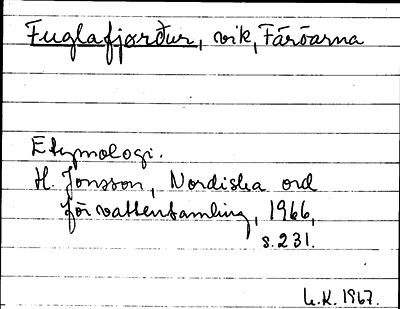 Fuglafjørður, vik, Färöarna
Etymologi.
H. Jonsson, Nordiska ord
för vattensamling, 1966,
s. 231.
L.K. 1967.